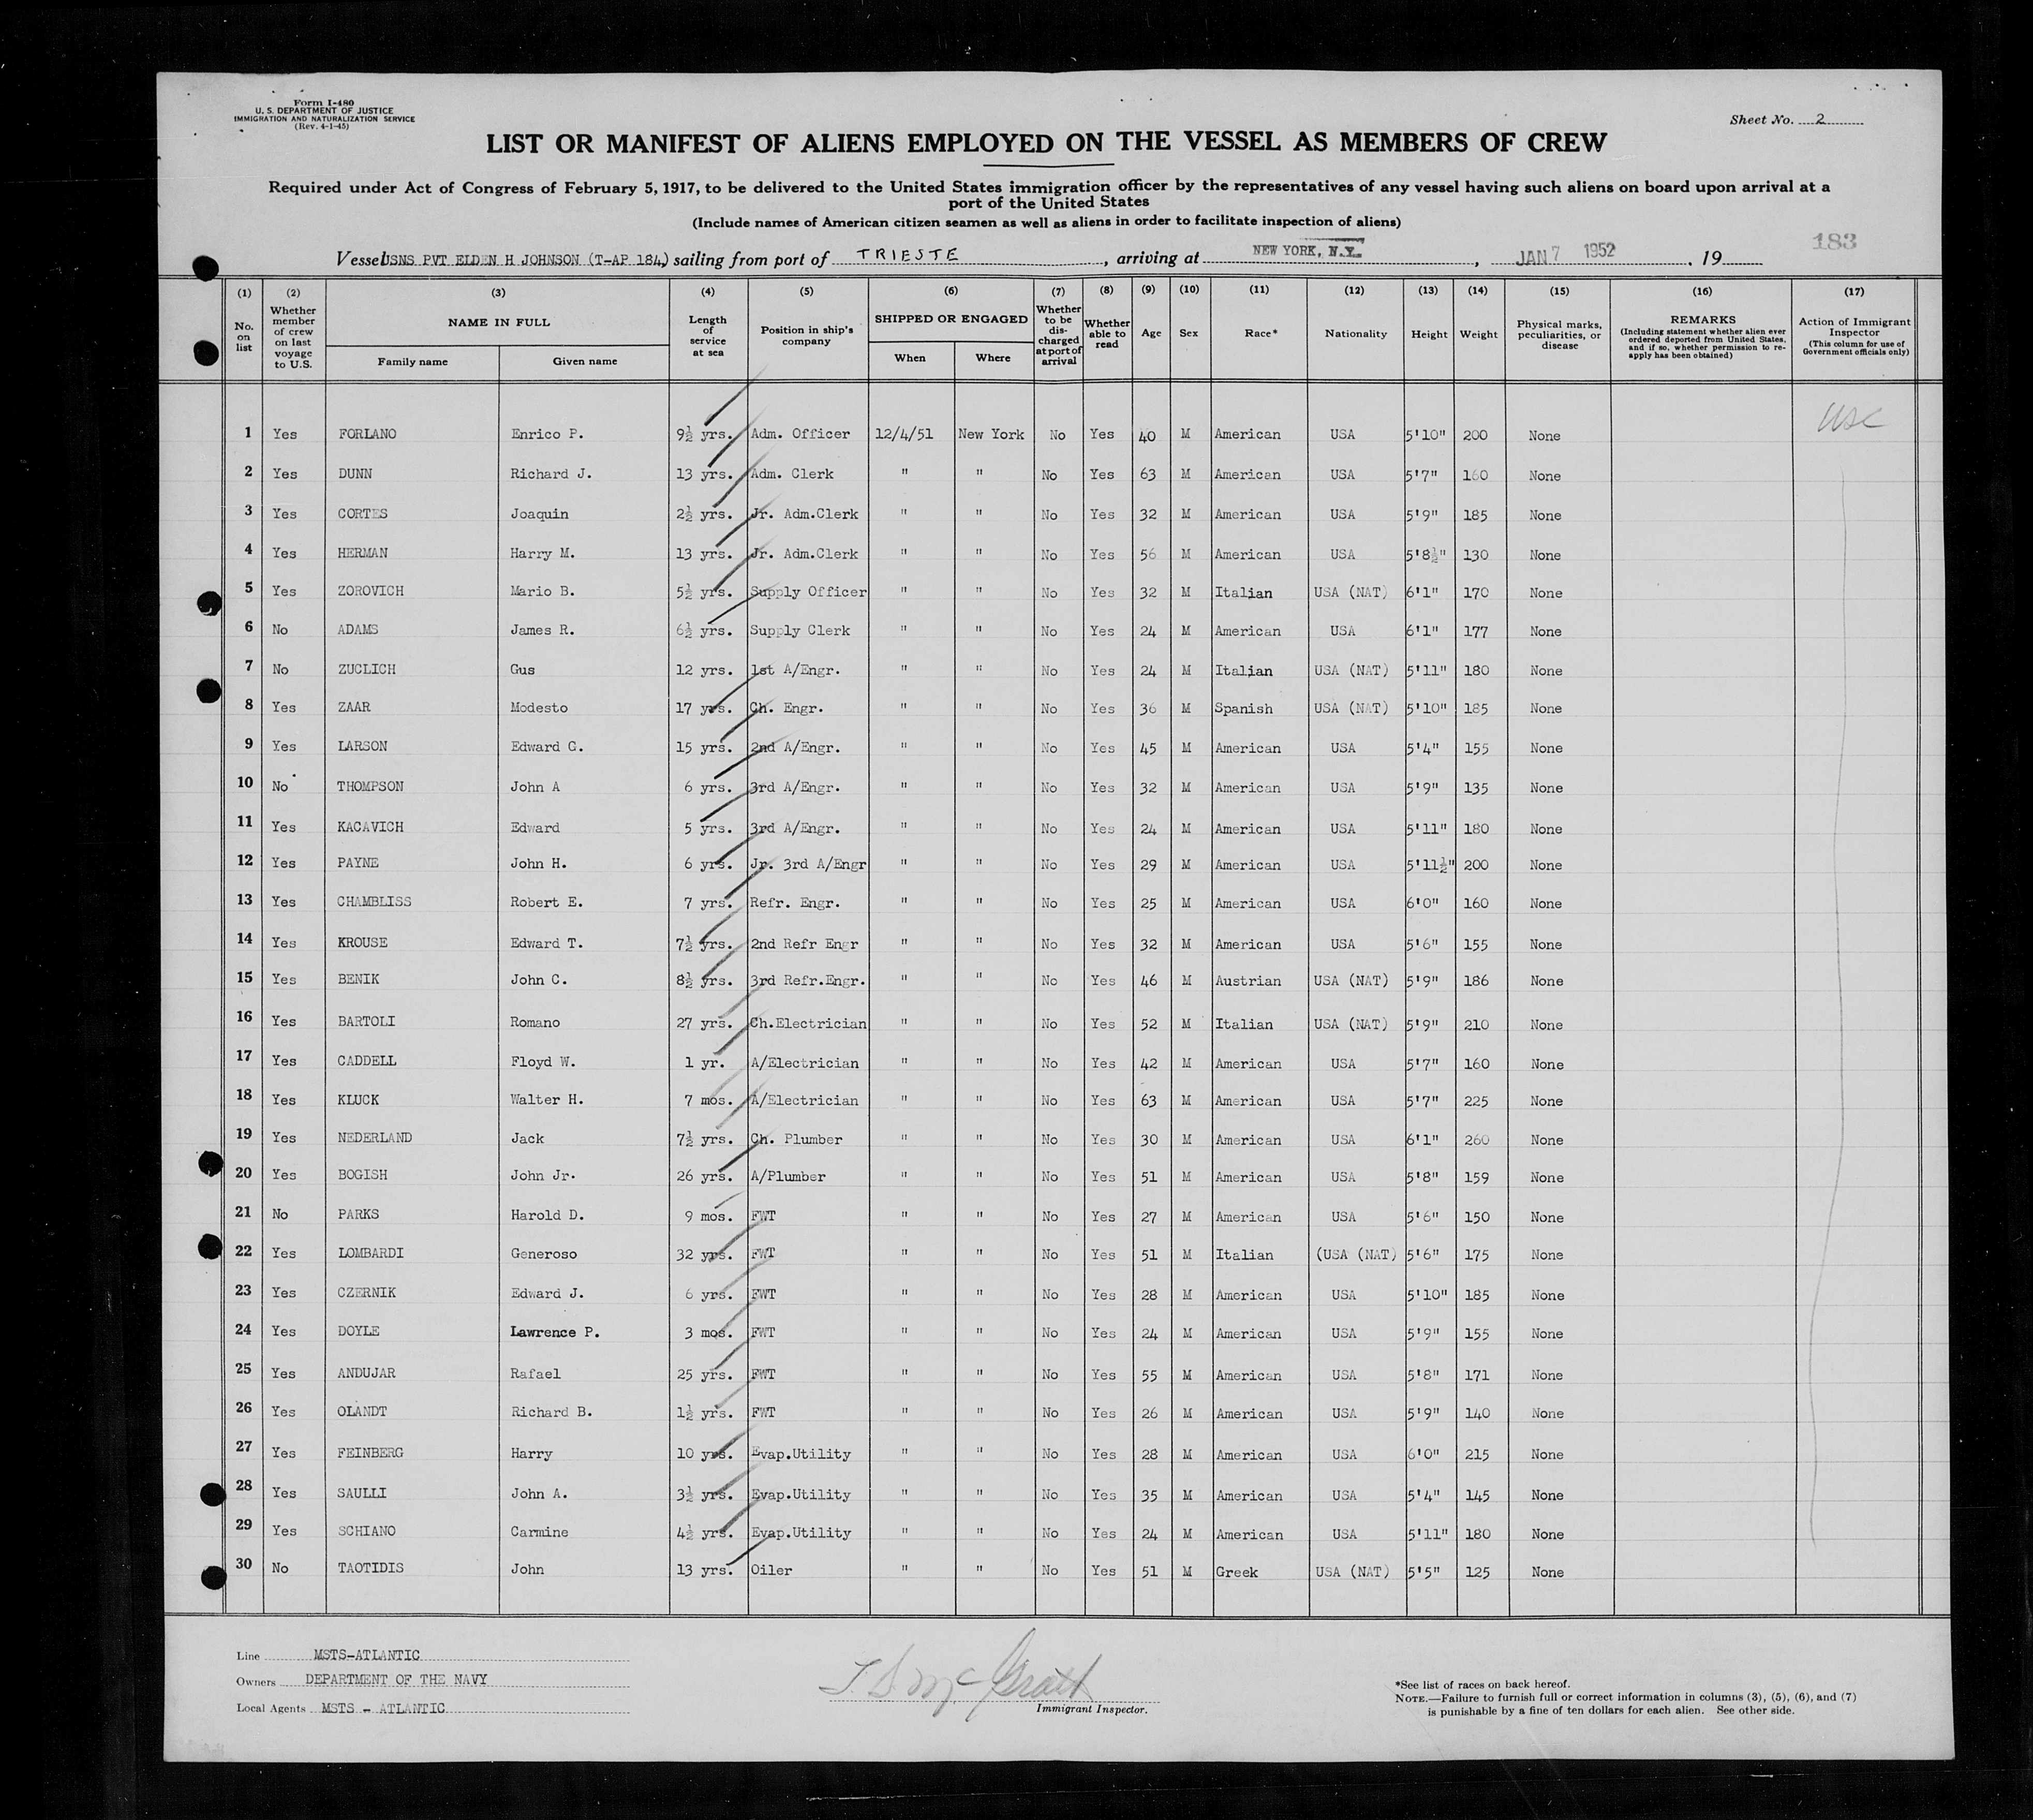 Form I-480
U. S. DEPARTMENT OF JUSTICE
IMMIGRATION AND NATURALIZATION SERVICE
(Rev. 4-1-45)
Sheet No. 2
LIST OR MANIFEST OF ALIENS EMPLOYED ON THE VESSEL AS MEMBERS OF CREW
Required under Act of Congress of February 5, 1917, to be delivered to the United States immigration officer by the representatives of any vessel having such aliens on board upon arrival at a
port of the United States
(Include names of American citizen seamen as well as aliens in order to facilitate inspection of aliens)
183
Vessel USNS PVT ELDEN H JOHNSON (T-AP 184) sailing from port of TRIESTE, arriving at NEW YORK, N.Y., JAN 7 1952, 19
(1) No. on list
(2) Whether member of crew on last voyage to U.S.
(3) NAME IN FULL Family name Given name
(4) Length of service at sea
(5) Position in ship's company
(6) SHIPPED OR ENGAGED When Where
(7) Whether to be discharged at port of arrival
(8) Whether able to read
(9) Age
(10) Sex
(11) Race*
(12) Nationality
(13) Height
(14) Weight
(15) Physical marks, peculiarities, or disease
(16) REMARKS (Including statement whether alien ever ordered deported from United States, and if so, whether permission to re-apply has been obtained)
(17) Action of Immigrant Inspector (This column for use of Government officials only)
1 Yes FORLANO Enrico P. 9½ yrs. Adm. Officer 12/4/51 New York No Yes 40 M American USA 5'10" 200 None USC
2 Yes DUNN Richard J. 13 yrs. Adm. Clerk " " No Yes 63 M American USA 5'7" 160 None
3 Yes CORTES Joaquin 2½ yrs. Jr. Adm.Clerk " " No Yes 32 M American USA 5'9" 185 None
4 Yes HERMAN Harry M. 13 yrs. Jr. Adm.Clerk " " No Yes 56 M American USA 5'8½" 130 None
5 Yes ZOROVICH Mario B. 5½ yrs. Supply Officer " " No Yes 32 M Italian USA (NAT) 6'1" 170 None
6 No ADAMS James R. 6½ yrs. Supply Clerk " " No Yes 24 M American USA 6'1" 177 None
7 No ZUCLICH Gus 12 yrs. 1st A/Engr. " " No Yes 24 M Italian USA (NAT) 5'11" 180 None
8 Yes ZAAR Modesto 17 yrs. Ch. Engr. " " No Yes 36 M Spanish USA (NAT) 5'10" 185 None
9 Yes LARSON Edward C. 15 yrs. 2nd A/Engr. " " No Yes 45 M American USA 5'4" 155 None
10 No THOMPSON John A 6 yrs. 3rd A/Engr. " " No Yes 32 M American USA 5'9" 135 None
11 Yes KACAVICH Edward 5 yrs. 3rd A/Engr. " " No Yes 24 M American USA 5'11" 180 None
12 Yes PAYNE John H. 6 yrs. Jr. 3rd A/Engr " " No Yes 29 M American USA 5'11½" 200 None
13 Yes CHAMBLISS Robert E. 7 yrs. Refr. Engr. " " No Yes 25 M American USA 6'0" 160 None
14 Yes KROUSE Edward T. 7½ yrs. 2nd Refr Engr " " No Yes 32 M American USA 5'6" 155 None
15 Yes BENIK John C. 8½ yrs. 3rd Refr.Engr. " " No Yes 46 M Austrian USA (NAT) 5'9" 186 None
16 Yes BARTOLI Romano 27 yrs. Ch.Electrician " " No Yes 52 M Italian USA (NAT) 5'9" 210 None
17 Yes CADDELL Floyd W. 1 yr. A/Electrician " " No Yes 42 M American USA 5'7" 160 None
18 Yes KLUCK Walter H. 7 mos. A/Electrician " " No Yes 63 M American USA 5'7" 225 None
19 Yes NEDERLAND Jack 7½ yrs. Ch. Plumber " " No Yes 30 M American USA 6'1" 260 None
20 Yes BOGISH John Jr. 26 yrs. A/Plumber " " No Yes 51 M American USA 5'8" 159 None
21 No PARKS Harold D. 9 mos. FWT " " No Yes 27 M American USA 5'6" 150 None
22 Yes LOMBARDI Generoso 32 yrs. FWT " " No Yes 51 M Italian (USA (NAT) 5'6" 175 None
23 Yes CZERNIK Edward J. 6 yrs. FWT " " No Yes 28 M American USA 5'10" 185 None
24 Yes DOYLE Lawrence P. 3 mos. FWT " " No Yes 24 M American USA 5'9" 155 None
25 Yes ANDUJAR Rafael 25 yrs. FWT " " No Yes 55 M American USA 5'8" 171 None
26 Yes OLANDT Richard B. 1½ yrs. FWT " " No Yes 26 M American USA 5'9" 140 None
27 Yes FEINBERG Harry 10 yrs. Evap.Utility " " No Yes 28 M American USA 6'0" 215 None
28 Yes SAULLI John A. 3½ yrs. Evap.Utility " " No Yes 35 M American USA 5'4" 145 None
29 Yes SCHIANO Carmine 4½ yrs. Evap.Utility " " No Yes 24 M American USA 5'11" 180 None
30 No TAOTIDIS John 13 yrs. Oiler " " No Yes 51 M Greek USA (NAT) 5'5" 125 None
Line MSTS-ATLANTIC
Owners DEPARTMENT OF THE NAVY
Local Agents MSTS - ATLANTIC
T S McGrath
Immigrant Inspector.
*See list of races on back hereof.
NOTE.—Failure to furnish full or correct information in columns (3), (5), (6), and (7)
is punishable by a fine of ten dollars for each alien. See other side.